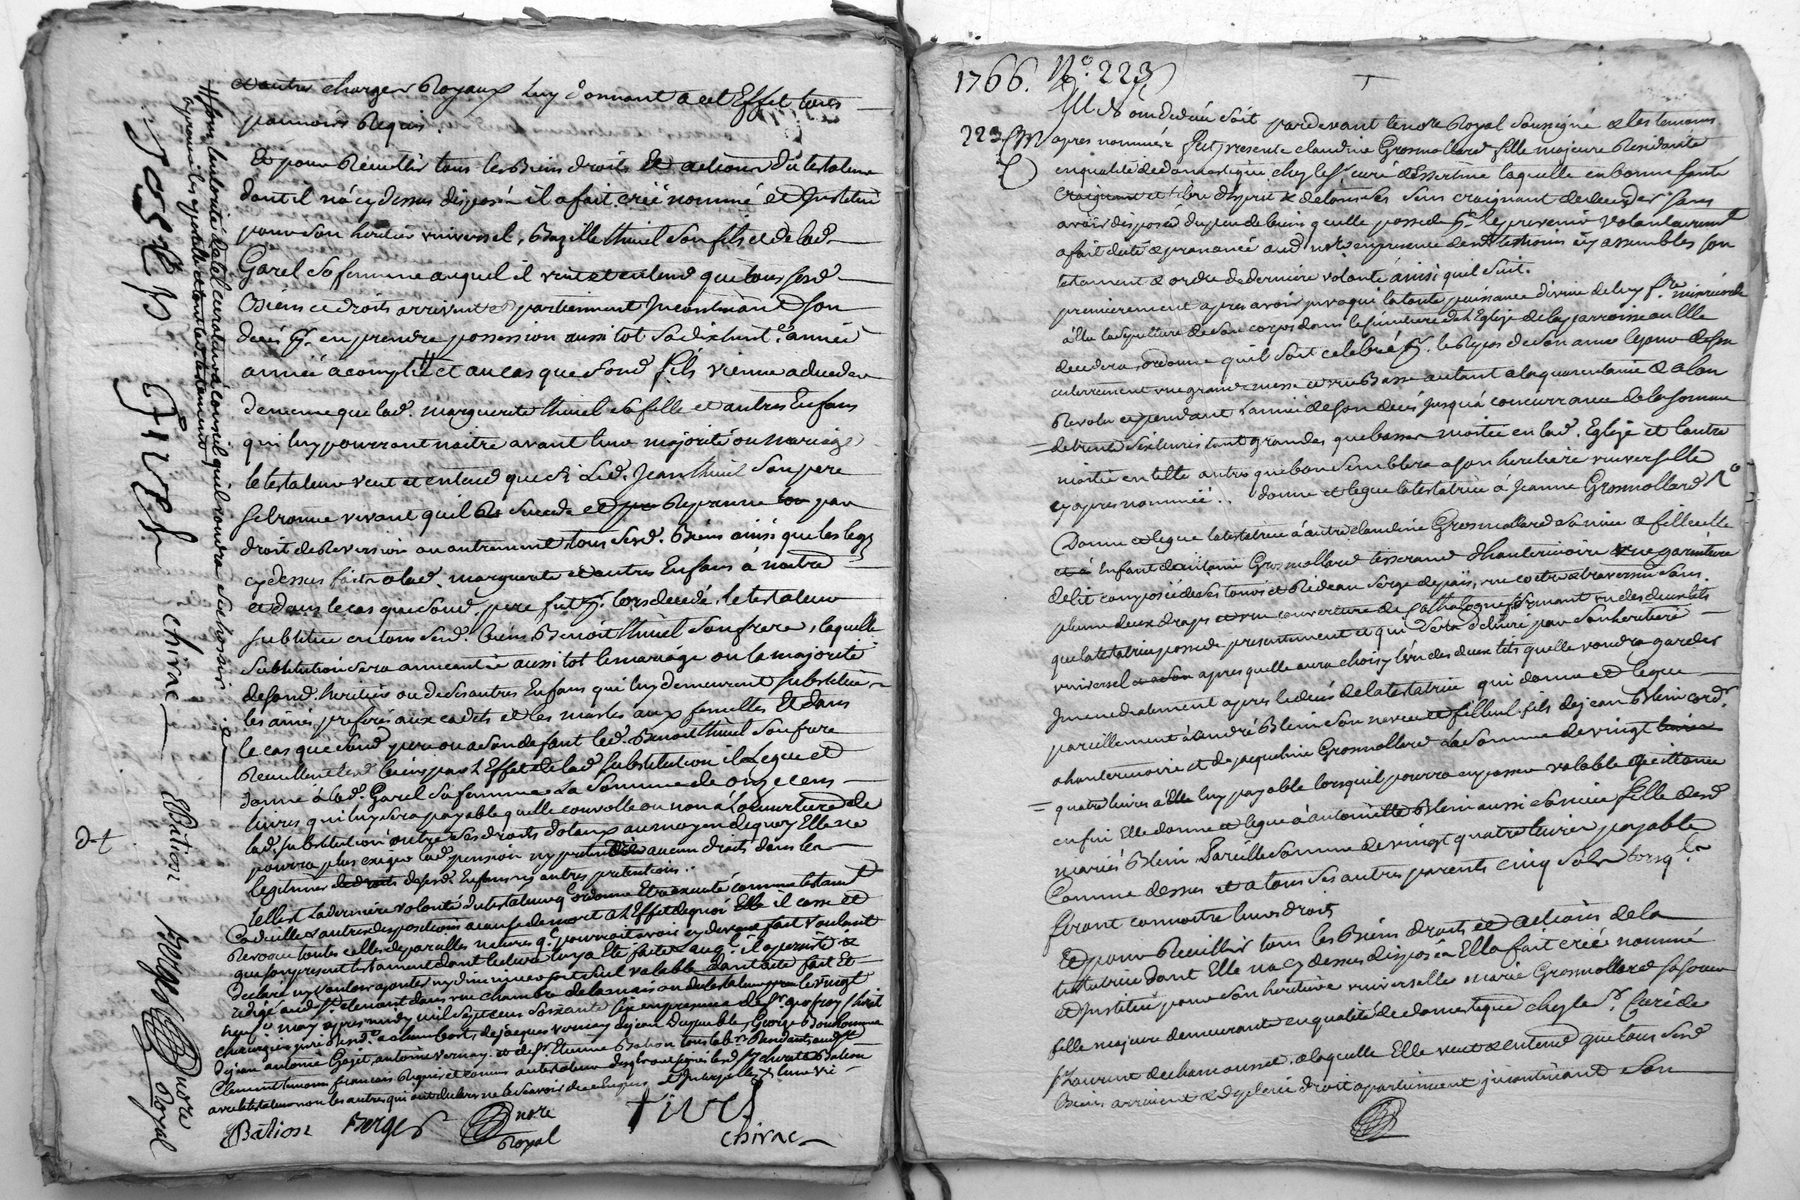 et autres charges Royaux luy donnant a cet Effet tous
pouvoirs Requis.
Et pour Recueillir tous les Biens droits et actions du testateur
dont il n'a cy dessus disposé il a fait créé nommé et Institué
pour son heritier universel, Bazille thivel son fils et de lad.
Garel sa femme auquel il veut et entend que tous sesd.
Biens et droits arrivent et partiennent Incontinant son
deces p. en prendre possession aussi tot sa dixhuit.e année
année acomplie # et au cas que sond. fils vienne a deceder
de meme que lad. marguerite thivel sa fille et autres Enfans
qui luy pourront naitre avant leur majorité ou mariage
le testateur veut et entend que si led. Jean thivel son pere
se trouve vivant qu'il succede et Reprenne par
droit de Reversion ou autrement tous sesd. Biens ainsi que les legs
cy dessus faits a lad. marguerite et autres Enfans à naitre
et dans le cas que sond. pere fut p. lors decedé, le testateur
substitue en tous sesd. biens Benoit thivel son frere, laquelle
substitution sera aneantie aussi tot le mariage ou la majorité
de sond. heritier ou de ses autres Enfans qui luy demeurent substitués
les ainés preferés aux cadets et les masles aux femelles Et dans
le cas que sond. pere ou a son defaut led. Benoit thivel son frere
Recueillent sesd. biens par l'Effet de lad. substitution il Legue et
donne à lad. Garel sa femme La somme de onze cens
livres qui luy sera payable qu'elle convolle ou non à L'ouverture de
lad. substitution outre ses droits dotaux au moyen de quoy Elle ne
pourra plus exiger lad. pension ny pretendre aucun droits dans les
legitimes desd. Enfans ny autres pretentions..
telle est La derniere volonté du testateur q. ordonne Etre executé comme testam.t
Codicille et autres dispositions a cause de mort a l'Effet de quoi il casse et
Revoque toutes celles de pareilles natures q. pourroit avoir cy devant fait voulant
que son present testament dont lecture luy a eté faite
declare ny vouloir ajouter ny diminuer soit seul valable dont acte fait Et
redigé aud. St. clement dans une chambre de la maison du testateur le vingt
neuf may apres midy mil sept cens soixante six en presence de Sr. Joseph
chirurgien de jacques vernay George Bonhomme
antoine Gazet, antoine vernay et de Sr. Etienne Bation
Clement temoins
avec le testateur non les autres qui ont declaré ne le scavoir de ce enquis et Interpellés
Bation Berger nore Royal tivel chirac
# sous l'autorité
Joseph tivel chirac Bation Berger nore Royal
1766. No. 223
223
pardevant le nore Royal soussigné et les temoins
apres nommés fut presente claudine Grosmollard fille majeure Residante
en qualité de domestique chez le Sr. curé d'essertine laquelle en bonne santé
libre d'esprit et de tous ses sens craignant de deceder sans
avoir disposé du peu de biens qu'elle possede p. le prevenir volontairement
a fait dicté et prononcé aud. nore en presence desd. temoins cy assemblés son
testament et ordre de derniere volonté ainsi quil suit.
premierement apres avoir invoqué la toute puissance divine
élu la sepulture de son corps dans le cimetiere de l'Eglise de la parroisse ou Elle
decedera, ordonne qu'il soit celebré p. le Repos de son ame le jour de son
enterrement une grande messe et une Basse autant a la quarantaine et a l'an
Revolu et pendant l'année de son deces jusqu'à concurrance de la somme
de trente six livres tant grandes que basses moitie en lad. Eglise et l'autre
moitie en telle autre que bon semblera a son heritiere universelle
cy apres nommée.. donne et legue la testatrice à Jeanne Grosmollard
Donne et legue la testatrice à autre claudine Grosmollard sa niece et filleulle
Enfant d'antoine Grosmollard tisserand d'hauterivoire une garniture
de lit composée de ses tours et Rideau serge de païs, un coetre et traversin sans
plume deux draps et une couverture de Cathalogne formant un des deux lits
que la testatrice possede presentement et qui sera delivré par son heritiere
universel apres quelle aura choisy l'un des deux lits quelle voudra garder
Immediatement apres le deces de la testatrice qui donne et legue
pareillement à andré Blein son neveu et filleul fils de jean Blein cord.r
a hauterivoire et de jacqueline Grosmollard La somme de vingt
quatre livres a luy payable lorsquil pourra en passer valable quittance
enfin Elle donne et legue à antoinette Blein aussi sa niece fille desd.
mariés Blein Pareille somme de vingt quatre livres payable
Comme dessus et a tous ses autres parents cinq sols lorsq.
feront connoitre leurs droits
Et pour Recueillir tous les Biens droits et actions de la
testatrice dont Elle na cy dessus disposé a Elle a fait créé nommé
et Institué pour son heritiere universelle marie Grosmollard sa soeur
fille majeure demeurante en qualité de domestique chez le Sr. Curé de
St. Laurent de chamousset, a laquelle Elle veut et entend que tous sesd
Biens arrivent et de plein droit apartiennent jncontinant son